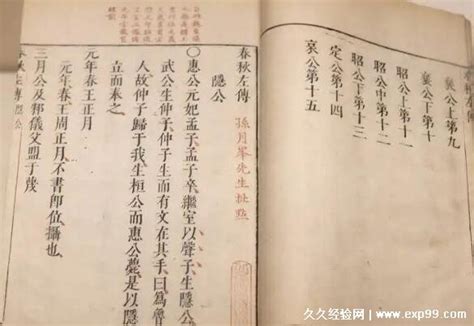 襄公上第九
襄公下第十
昭公上第十一
昭公中第十二
昭公下第十三
定公第十四
哀公第十五
春秋左傳 孫月峯先生批點
隱公
〇惠公元妃孟子孟子卒繼室以聲子生隱公
武公生仲子仲子生而有文在其手曰爲
人故仲子歸于我生桓公而惠公薨是
立而奉之
元年春王正月
元年春王周正月不書卽位攝也
三月公及邾儀父盟于蔑
春秋左傳 隱公
久久经验网 www.exp99.com